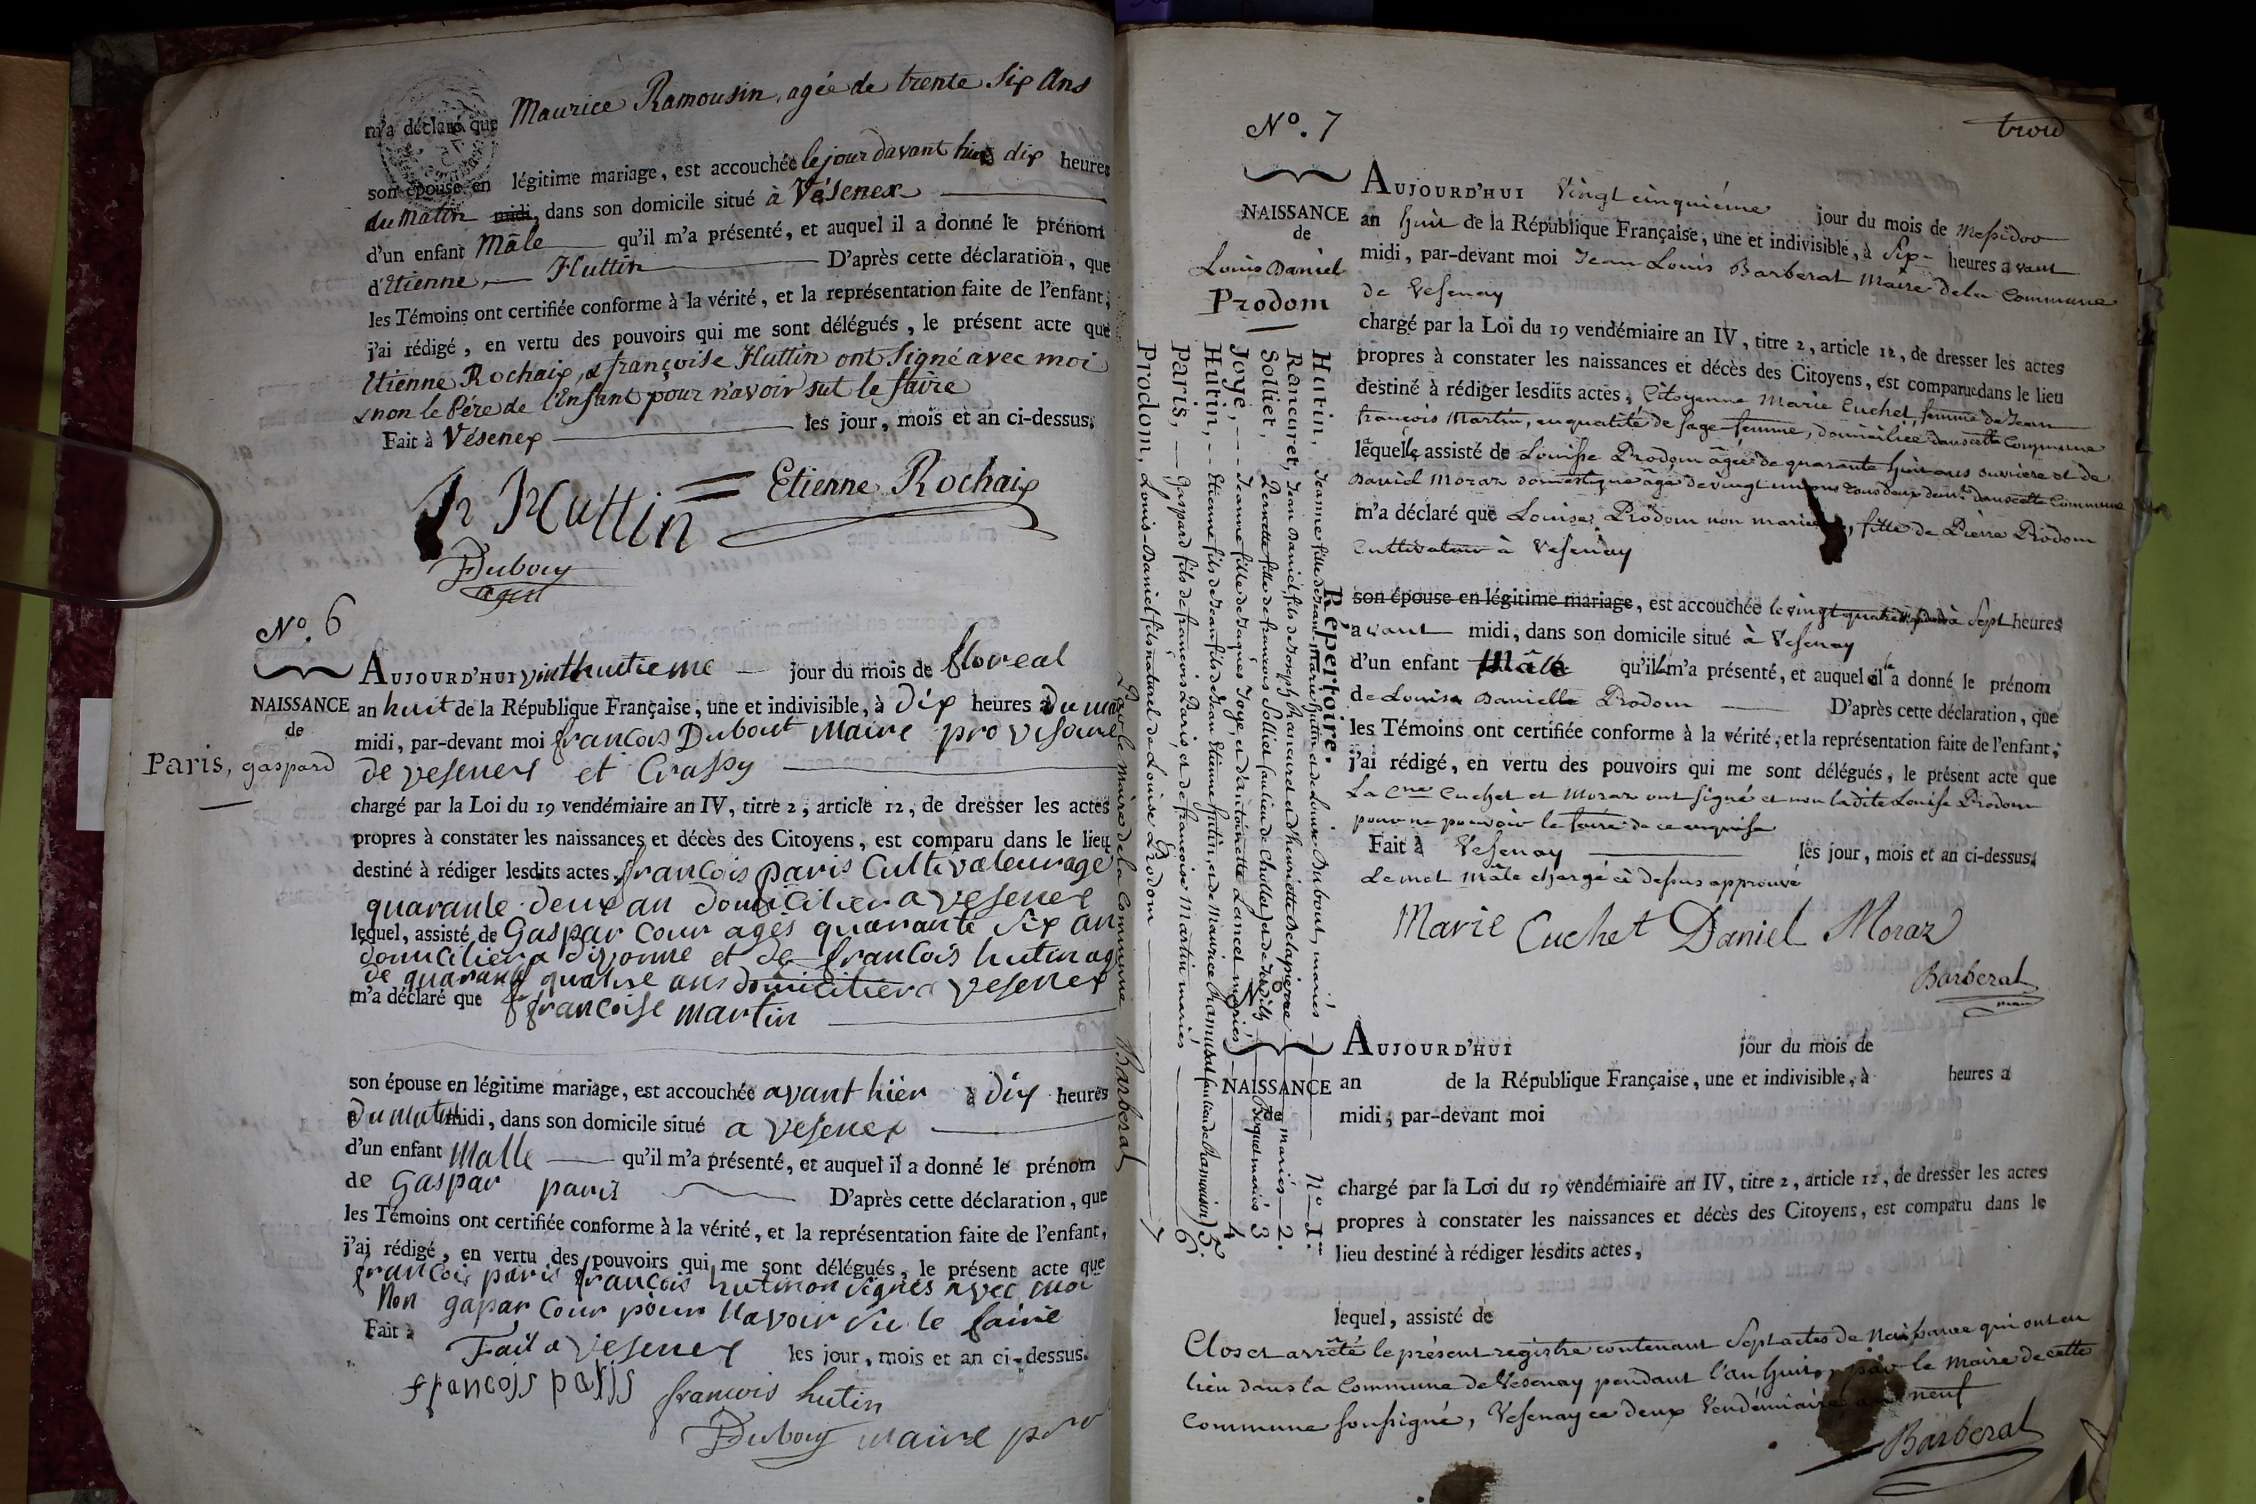 Maurice Ramousin, agée de trente six ans
m'a déclaré que
son épouse en légitime mariage, est accouchée le jour davant hier dix heures
du Matin midi, dans son domicile situé à Vésenex
d'un enfant Mâle qu'il m'a présenté, et auquel il a donné le prénom
d'Etienne, Huttin D'après cette déclaration, que
les Témoins ont certifiée conforme à la vérité, et la représentation faite de l'enfant,
j'ai rédigé, en vertu des pouvoirs qui me sont délégués, le présent acte que
Etienne Rochaix, & françoise Huttin ont Signé avec moi
& non le Pére de l'Enfant pour n'avoir sut le faire
Fait à Vésenex les jour, mois et an ci-dessus.
Huttin = Etienne Rochaix
Dubouy
agent
N°. 6
NAISSANCE
de
Paris, gaspard
AUJOURD'HUI vinthuitieme jour du mois de floreal
an huit de la République Française, une et indivisible, à Dix heures
midi, par-devant moi francois Dubout Maire provisoire
de vesenex et Crassy
chargé par la Loi du 19 vendémiaire an IV, titre 2, article 12, de dresser les actes
propres à constater les naissances et décès des Citoyens, est comparu dans le lieu
destiné à rédiger lesdits actes, francois paris Cultivateur age
quarante deux an domicilier a vesenex
lequel, assisté de Gaspar Cour agés quarante six an
domicilier a divonne et de francois hutin age
de quarante quatre ans domicilier a vesenex
m'a déclaré que francoise martin
son épouse en légitime mariage, est accouchée avant hier à Dix heures
Du matin midi, dans son domicile situé a vesenex
d'un enfant Malle qu'il m'a présenté, et auquel il a donné le prénom
de Gaspar paris D'après cette déclaration, que
les Témoins ont certifiée conforme à la vérité, et la représentation faite de l'enfant,
j'ai rédigé, en vertu des pouvoirs qui me sont délégués, le présent acte que
francois paris francois hutin on signés avec moi
Non gapar Cour pour navoir su le faire
Fait à
Fait a vesenex les jour, mois et an ci-dessus.
francois paris francois hutin
Dubouy maire pro
trois
N°. 7
NAISSANCE
de
Louis Daniel
Prodom
AUJOURD'HUI Vingt cinquiéme jour du mois de Messidor
an huit de la République Française, une et indivisible, à Six heures avant
midi, par-devant moi Jean Louis Barberat Maire de la Commune
de Vesenay
chargé par la Loi du 19 vendémiaire an IV, titre 2, article 12, de dresser les actes
propres à constater les naissances et décès des Citoyens, est comparue dans le lieu
destiné à rédiger lesdits actes, Citoyenne Marie Cuchet, femme de Jean
françois Martin, en qualité de sage-femme, domiciliée dans cette Commune
laquelle, assisté de Louisse Prodom âgée de quarante huit ans ouvriere et de
Daniel Moraz domestique âgé de vingt un ans tous deux demt. dans cette Commune
m'a déclaré que Louise Prodom non mariée, fille de Pierre Prodom
Cultivateur à Vesenay
son épouse en légitime mariage, est accouchée le vingt quatre à Sept heures
avant midi, dans son domicile situé à Vesenay
d'un enfant Mâle qu'il m'a présenté, et auquel il a donné le prénom
de Louis Danielle Prodom D'après cette déclaration, que
les Témoins ont certifiée conforme à la vérité, et la représentation faite de l'enfant,
j'ai rédigé, en vertu des pouvoirs qui me sont délégués, le présent acte que
La Cnne Cuchet et Moraz ont signé et non ladite Louise Prodom
pour ne pouvoir le faire de ce enquise
Fait à Vesenay les jour, mois et an ci-dessus.
Le mot mâle chargé ci dessus approuvé
Marie Cuchet Daniel Moraz
Barberat
maire
Répertoire.
Hutin, Jeanne fille de Jean-Marie Hutin et de Louise Dubout, mariés n° 1.
Rancuret, Jean Daniel, fils de Joseph Rancuret et d'henriette Delapierre mariés 2.
Solliet, Pernette fille de francois Solliet (au lieu de Chollet) et de Judith Bosquet mariés 3
Joye, Jeanne fille de Jaques Joye, et d'antoinette Lancet mariés 4
Hutin, Etienne fils de Jean fils de Jean Etienne Hutin, et de Maurice Ramusat (au lieu de Ramousin) 5
Paris, Gaspard fils de françois Paris, et de francoise Martin mariés 6
Prodom, Louis-Daniel fils naturel de Louise Prodom 7
Par le Maire de la Commune Barberat
N°
NAISSANCE
de
AUJOURD'HUI jour du mois de
an de la République Française, une et indivisible, à heures a
midi, par-devant moi
chargé par la Loi du 19 vendémiaire an IV, titre 2, article 12, de dresser les actes
propres à constater les naissances et décès des Citoyens, est comparu dans le
lieu destiné à rédiger lesdits actes,
lequel, assisté de
Clos et arrêté le présent registre contenant Sept actes de Naissance qui ont eu
lieu dans la Commune de Vesenay pendant l'an huit, par le Maire de cette
Commune soussigné, Vesenay ce deux Vendémiaire an neuf
Barberat